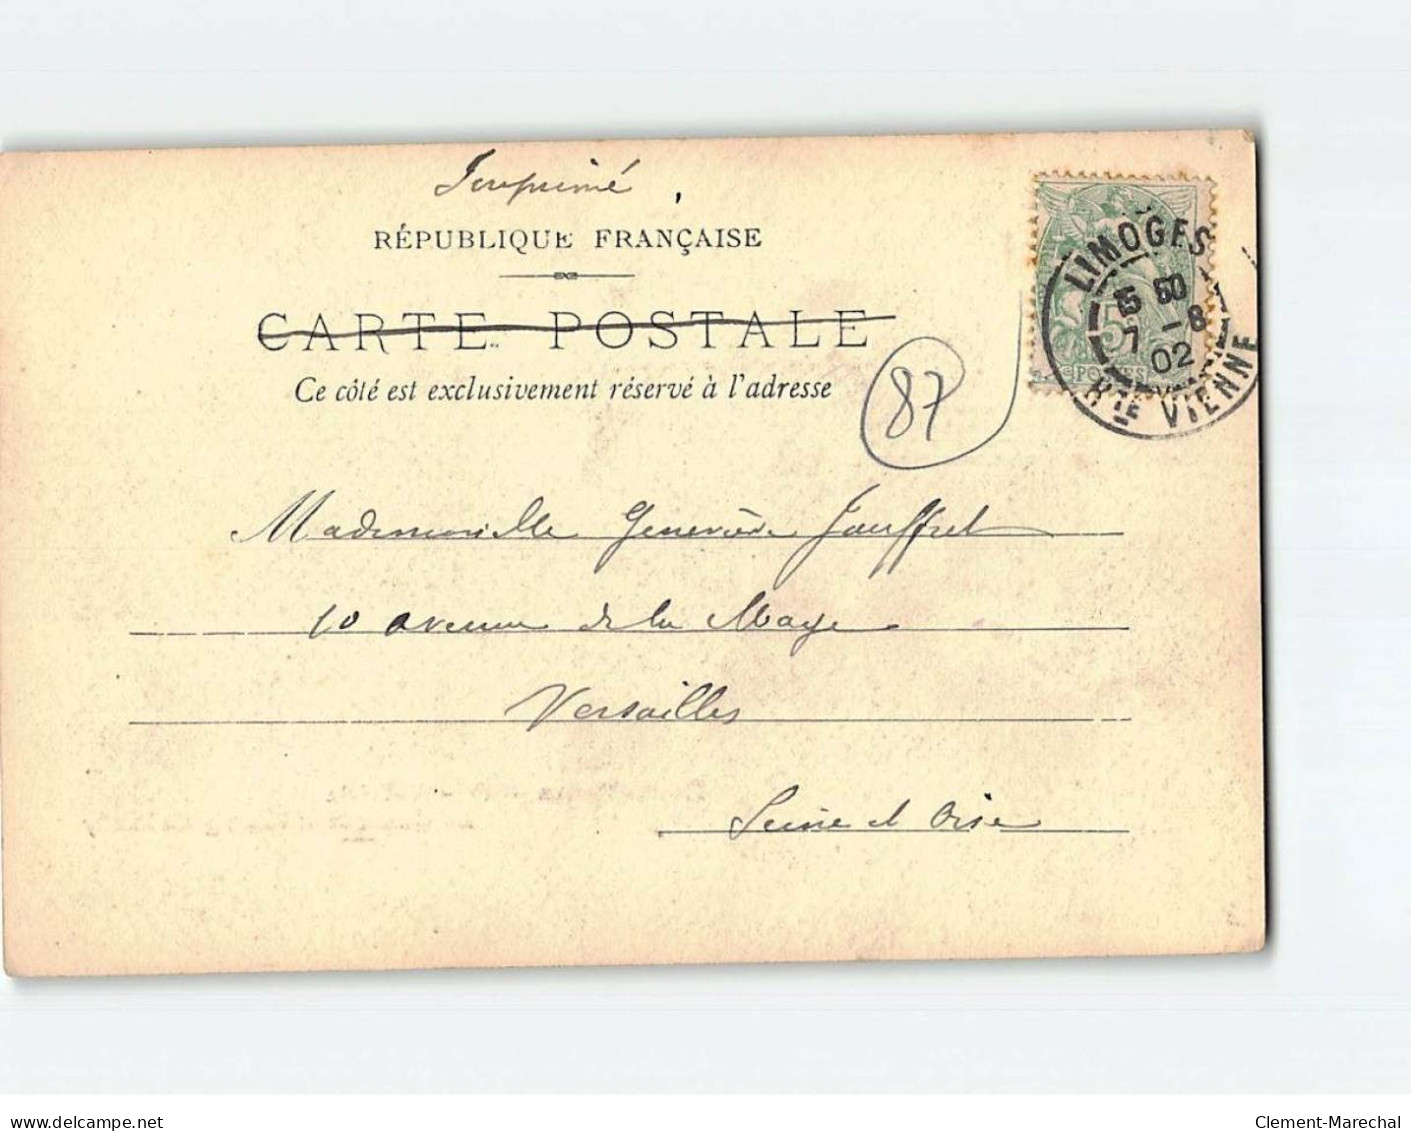 Imprimé
RÉPUBLIQUE FRANÇAISE
CARTE POSTALE
Ce côté est exclusivement réservé à l'adresse
LIMOGES
7 -8
02
HTE VIENNE
5
POSTES
87
Mademoiselle Geneviève Jauffret
10 avenue de la Maye
Versailles
Seine et Oise
delcampe.net
Clement-Marechal